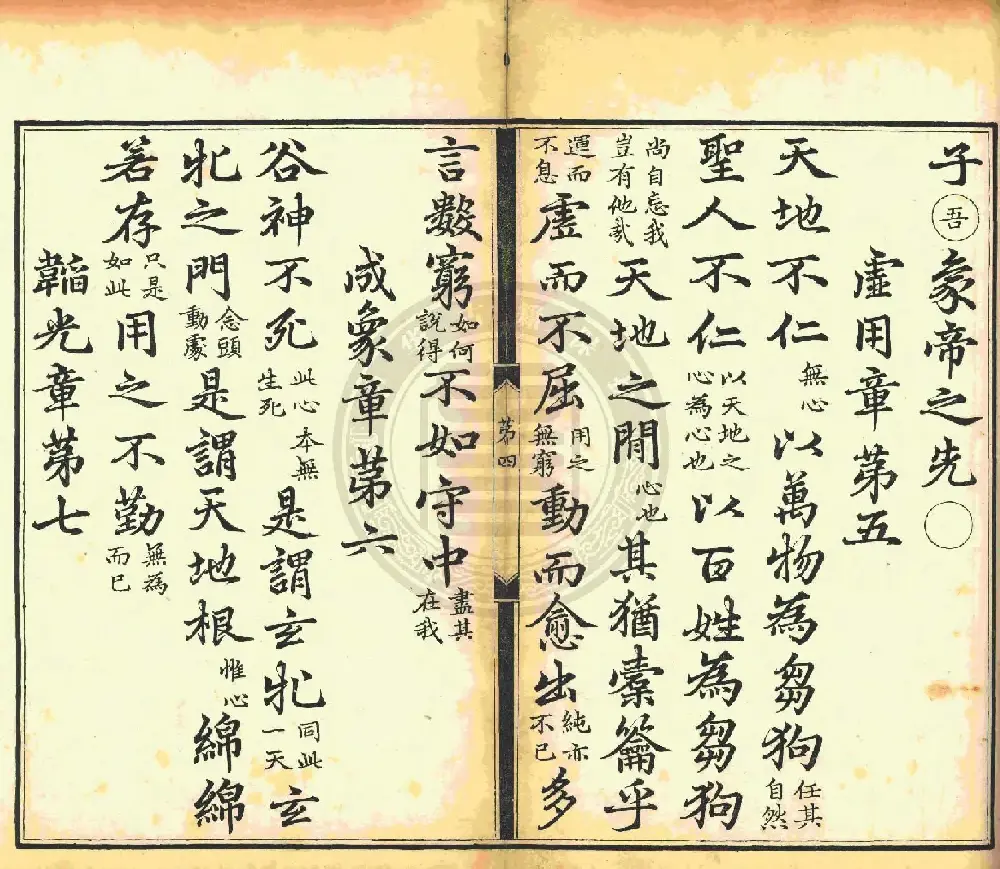 子吾象帝之先〇
虛用章第五
天地不仁無心以萬物為芻狗任其自然
聖人不仁以天地之心為心也以百姓為芻狗
尚自忘我豈有他哉天地之間心也其猶橐籥乎
運而不息虛而不屈用之無窮動而愈出純亦不已多
第四
言數窮如何說得不如守中盡其在我
成象章第六
谷神不死此心本無生死是謂玄牝同此一天玄
牝之門念頭動處是謂天地根惟心綿綿
若存只是如此用之不勤無為而已
韜光章第七